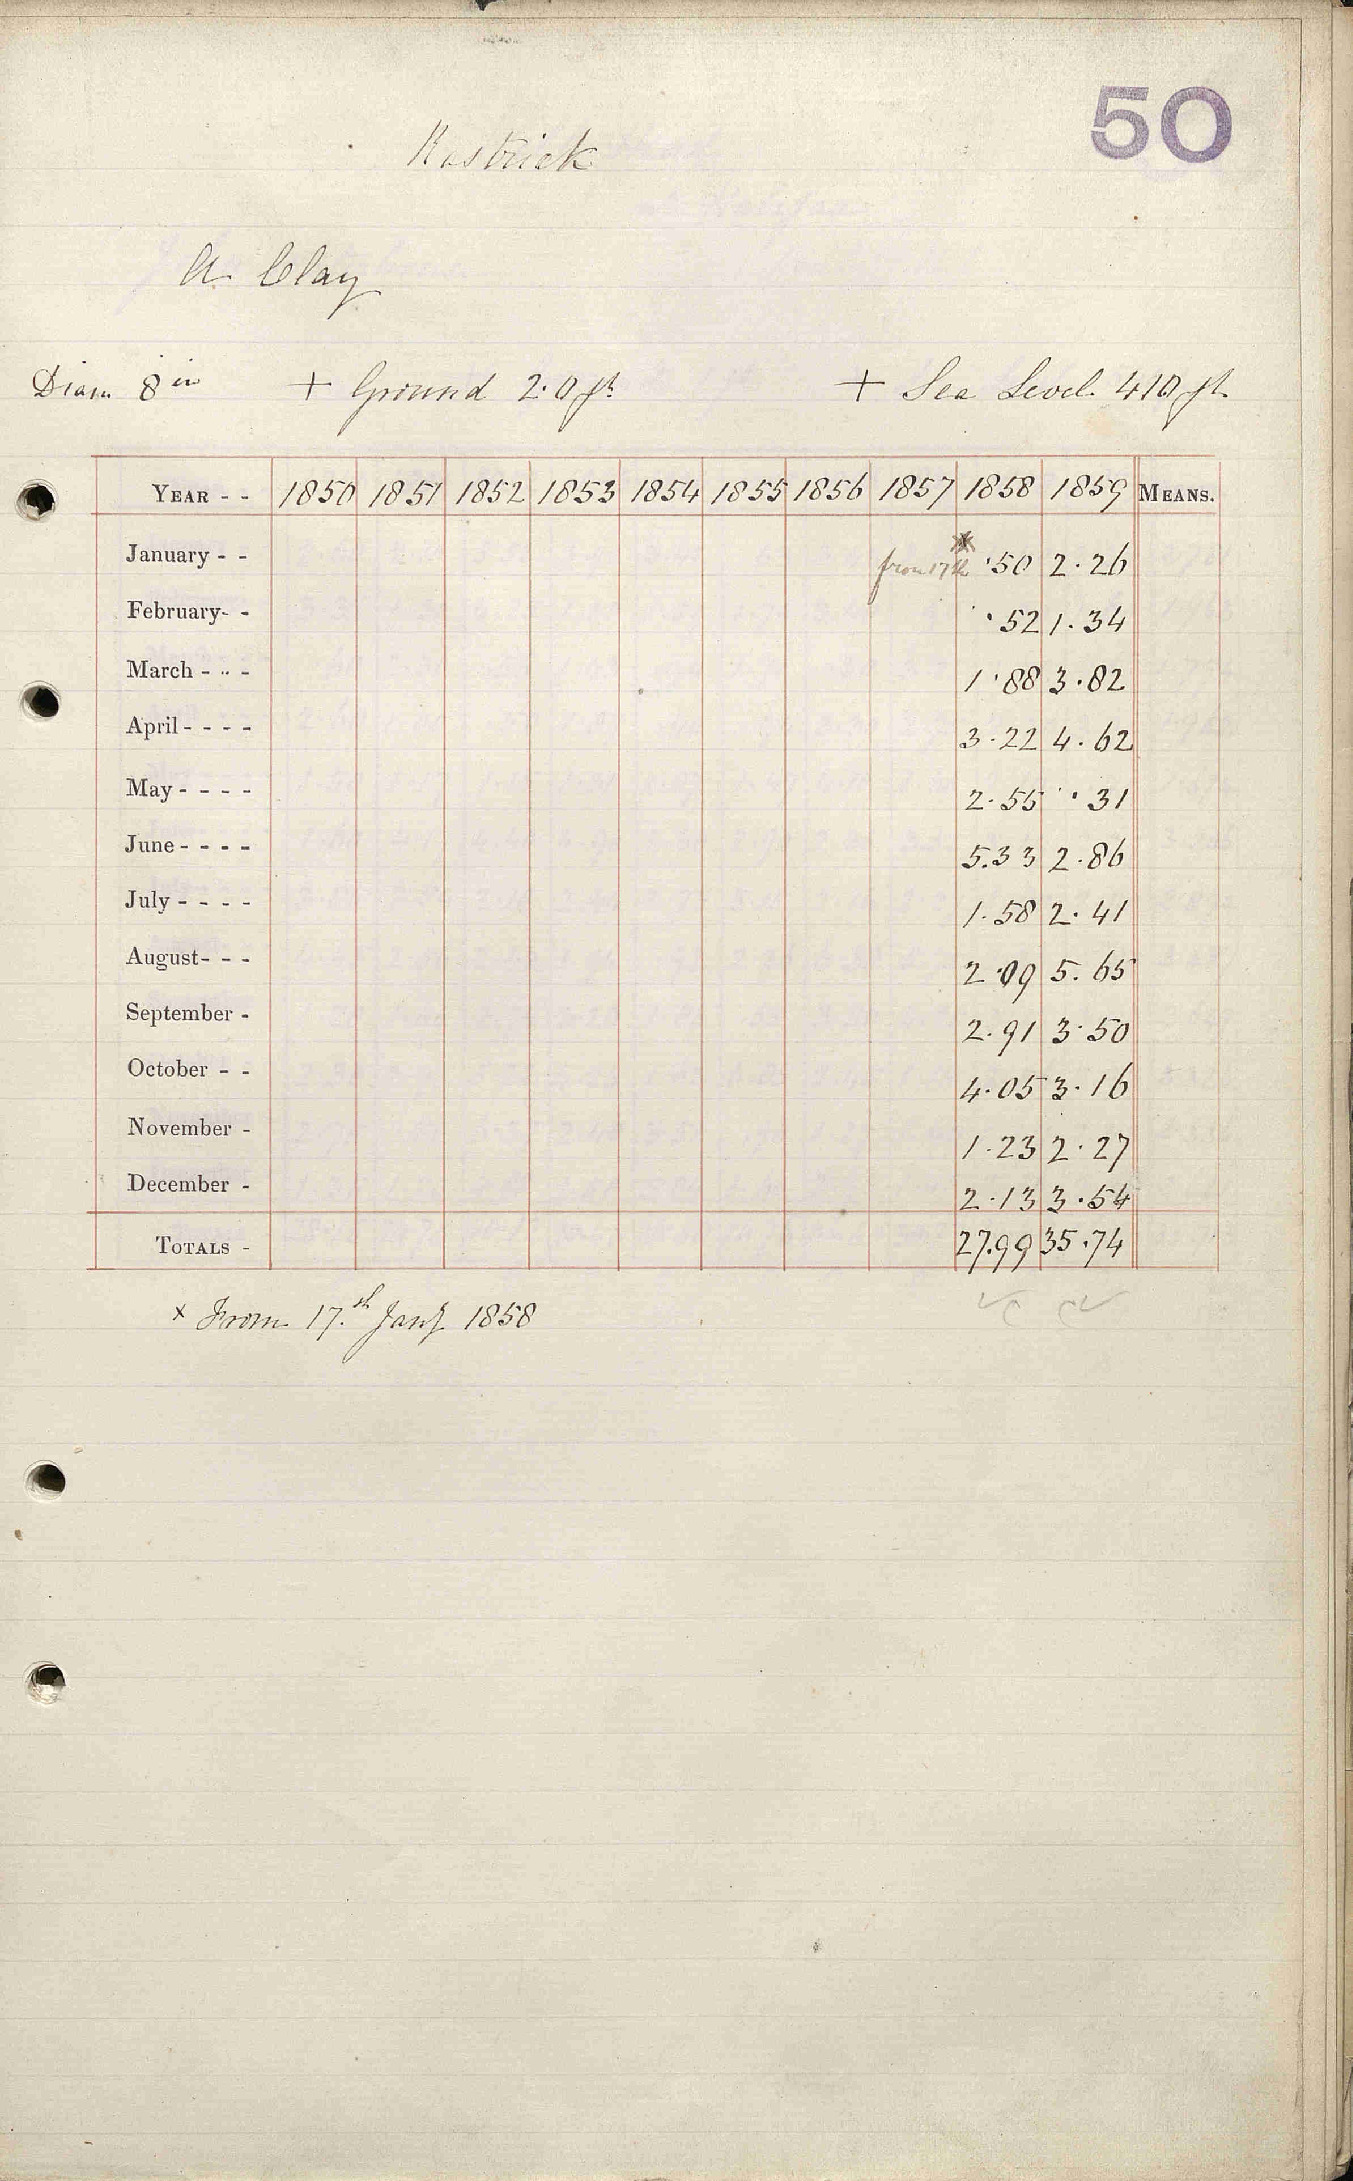 50
Rastrick
A. Clay
Diam 8 in + Ground 2.0 ft + Sea Level 410 ft
YEAR - - 1850 1851 1852 1853 1854 1855 1856 1857 1858 1859 MEANS.
January - - from 17th x ·50 2·26
February- - ·52 1·34
March - - - 1·88 3·82
April - - - - 3·22 4·62
May - - - - 2·55 ·31
June - - - - 5.33 2·86
July - - - - 1·58 2·41
August- - - 2·09 5.65
September - 2·91 3·50
October - - 4·05 3·16
November - 1·23 2·27
December - 2·13 3·54
TOTALS - 27.99 35·74
x From 17.th Jany 1858